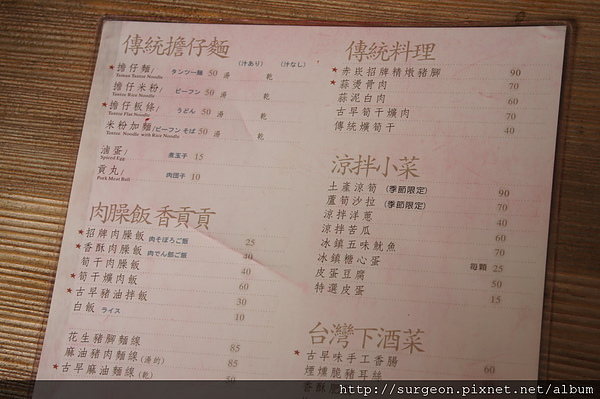 傳統擔仔麵
(汁あり) (汁なし)
★擔仔麵/ タンツー麵 50 湯 乾
Tainan Tantze Noodle
擔仔米粉/ ビーフン 50 湯 乾
Tantze Rice Noodle
★擔仔板條/ うどん 50 湯 乾
Tantze Flat Noodle
米粉加麵/ビーフンそば 50 湯 乾
Tantze Noodle with Rice Noodle
滷蛋/ 煮玉子 15
Spiced Egg
貢丸/ 肉団子 10
Pork Meat Ball
肉臊飯 香貢貢
★招牌肉臊飯 肉そぼろご飯 25
★香酥肉臊飯 肉でん部ご飯 30
筍干肉臊飯 40
★筍干爌肉飯 60
★古早豬油拌飯 30
白飯 ライス 10
花生豬腳麵線 85
麻油豬肉麵線(湯的) 85
★古早麻油麵線(乾) 50
傳統料理
★赤崁招牌精燉豬腳 90
★蒜燙骨肉 70
蒜泥白肉 60
古早筍干爌肉 70
傳統爌筍干 40
涼拌小菜
土產涼筍 (季節限定) 90
蘆筍沙拉 (季節限定) 70
涼拌洋蔥 40
涼拌苦瓜 60
冰鎮五味魷魚 70
冰鎮糖心蛋 每顆 25
皮蛋豆腐 50
特選皮蛋 15
台灣下酒菜
★古早味手工香腸 60
煙燻脆豬耳絲
香酥
http://surgeon.pixnet.net/album